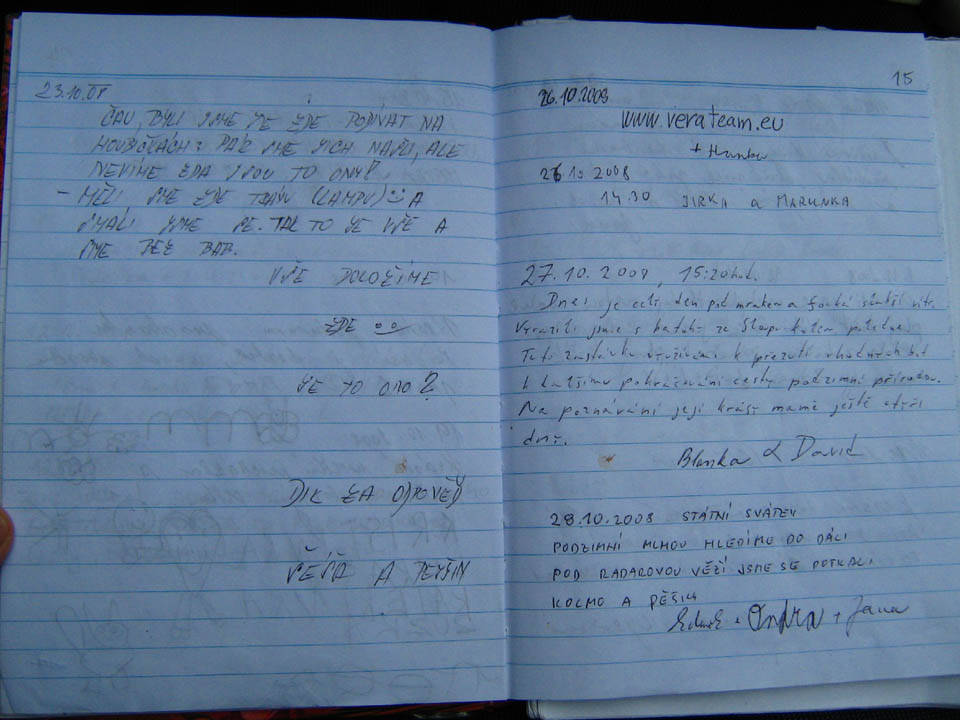 23.10.08
ČAU, BYLI JSME SE ZDE PODÍVAT NA
HOUBIČKÁCH? PÁR SME JICH NAŠLI, ALE
NEVÍME ZDA JSOU TO ONY?
- MĚLI SME ZDE (LAMPU) A
SMÁLI JSME SE. TAK TO JE VŠE A
SME BEZ BAB.
VŠE DOLOŽÍME
ZDE
JE TO ONO?
DÍK ZA ODPOVĚĎ
A
15
26.10.2008
www.verateam.eu
+ Hanka
26.10 2008
14.30 JIRKA a MARUNKA
27.10.2008, 15:20hod.
Dnes je celý den pod mrakem a fouká slabší vítr.
Vyrazili jsme s batohy ze Slap kolem poledne.
Tuto zastávku využíváme k přezutí vhodných bot
k dalšímu pokračování cesty podzimní přírodou.
Na poznávání její krásy máme ještě čtyři
dny.
Blanka & David
28.10.2008 STÁTNÍ SVÁTEK
PODZIMNÍ MLHOU HLEDÍME DO DÁLI
POD RADAROVOU VĚŽÍ JSME SE POTKALI
KOLMO A PĚŠKY
+ Ondra + Jana